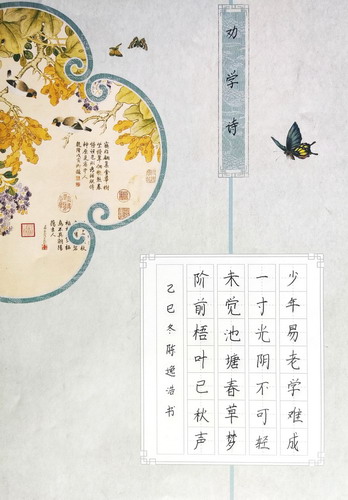 劝学诗
少年易老学难成
一寸光阴不可轻
未觉池塘春草梦
阶前梧叶已秋声
乙巳冬陈逸浩书